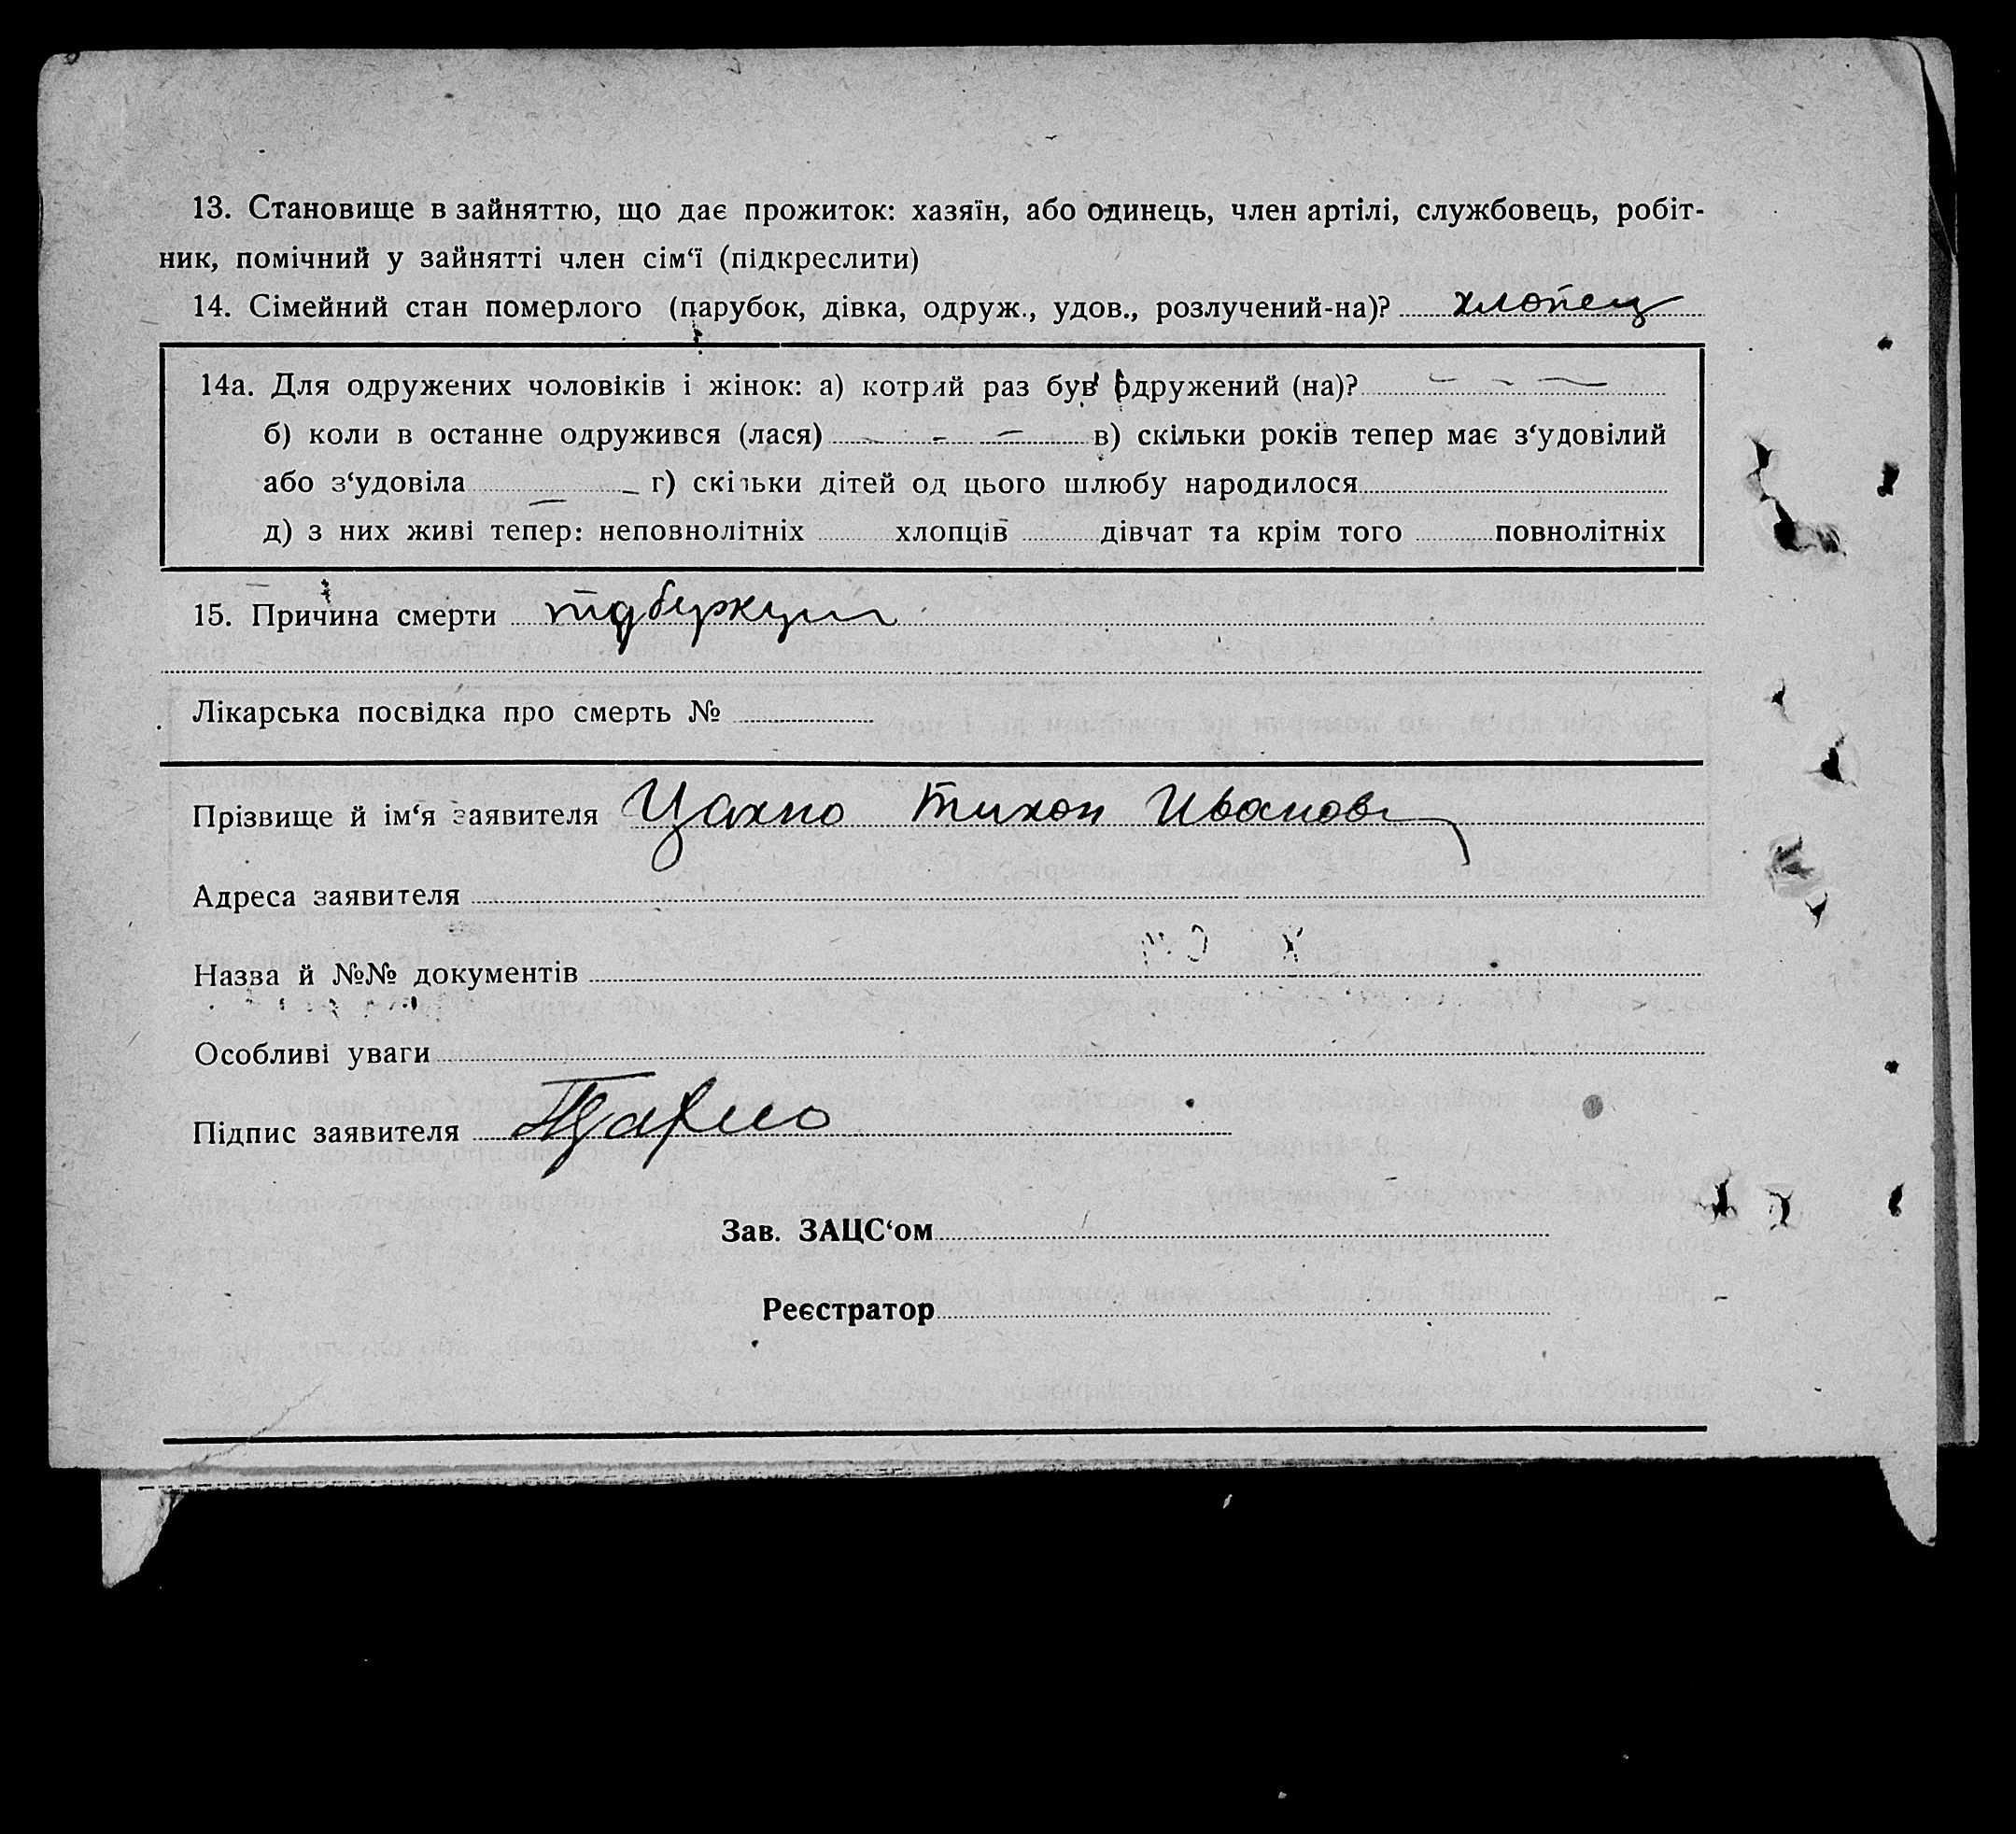 13. Становище в зайняттю, що дає прожиток: хазяїн, або одинець, член артілі, службовець, робіт-
ник, помічний у зайнятті член сім‘ї (підкреслити)
14. Сімейний стан померлого (парубок, дівка, одруж., удов., розлучений-на)? хлопец
14а. Для одружених чоловіків і жінок: а) котрий раз був одружений (на)?
б) коли в останне одружився (лася) в) скільки років тепер має з‘удовілий
або з‘удовіла г) скільки дітей од цього шлюбу народилося
д) з них живі тепер: неповнолітніх хлопців дівчат та крім того повнолітніх
15. Причина смерти
Лікарська посвідка про смерть №
Прізвище й ім‘я заявителя Цахно Тихон Иванов
Адреса заявителя
Назва й №№ документів
Особливі уваги
Підпис заявителя
Зав. ЗАЦС‘ом
Реєстратор